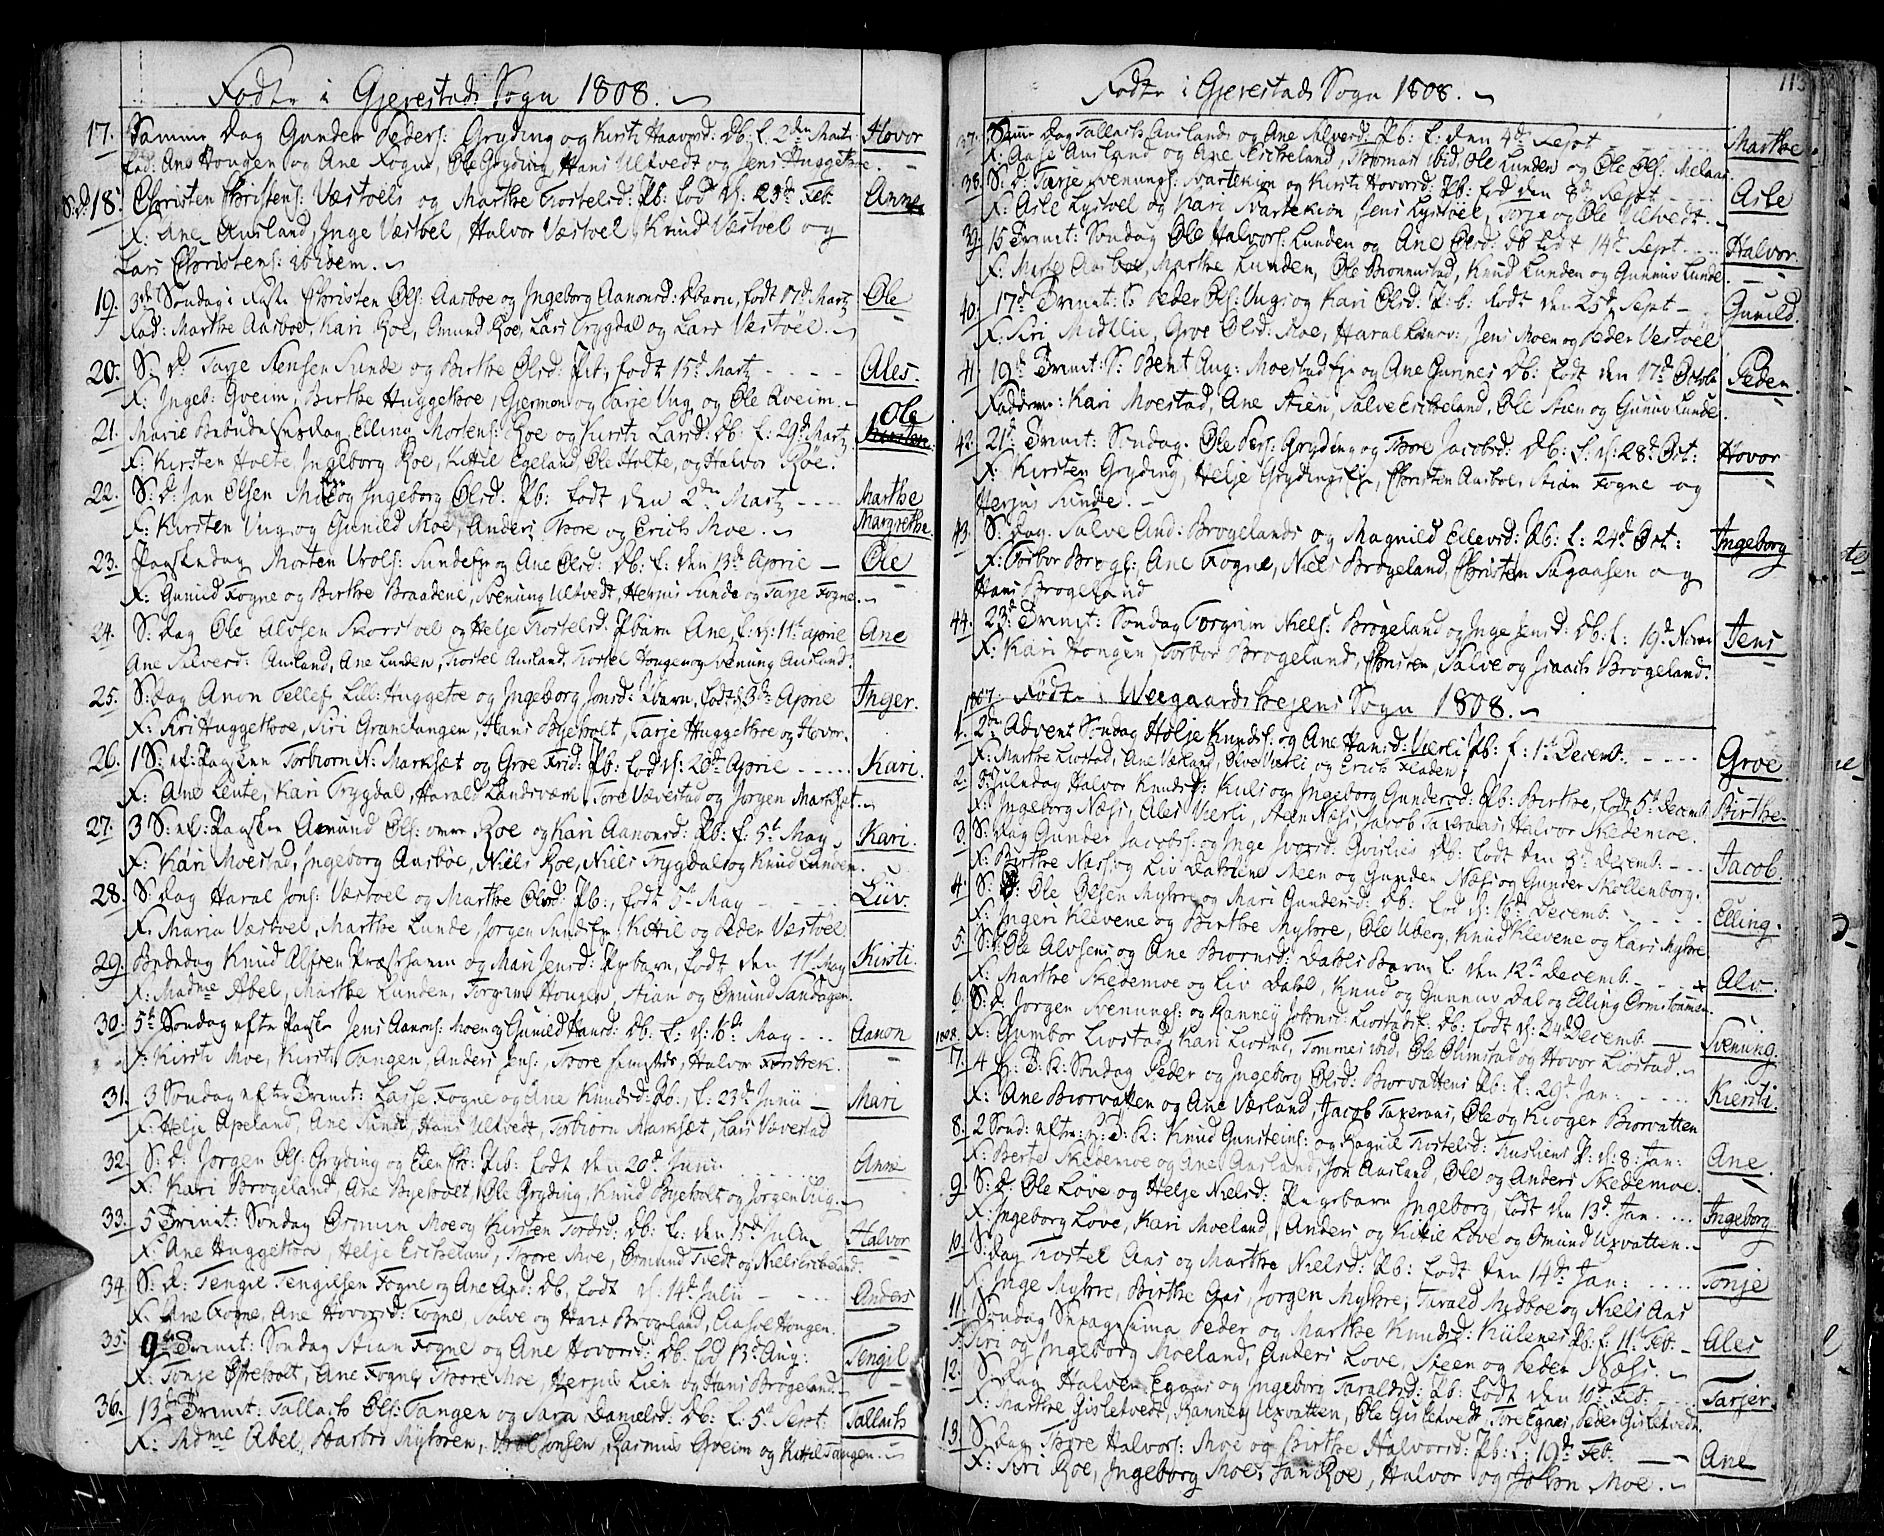 Fødte i Gjerestads Sogn 1808.
17. Samme Dag Gunder Peders: Gryding og Kirsti Haavord: Db: f. 2den Martz Hovor
Fad: Ane Hougen og Ane Fogne, Ole Gryding, Hans Ulltvedt og Jens Huggethoe.
S: D: 18. Christen Christens: Væstvels og Marthe Trostelsd: Pb: fød d: 23de Feb. Anne
F: Ane Ausland, Inge Væstvel, Halvor Væstvel, Knud Væstvel og
Lars Christens: ibidem.
19. 3de Søndag i Faste Christen Ols: Aasboe og Ingeborg Aanonsd: Dbarn, født 17de Martz Ole
Fad: Marthe Aasboe, Kari Roe, Amund Roe, Lars Trygdal og Lars Væstvöl.
20. S: D: Tarje Stensen Sunde og Birthe Olsd: Pb, født 15de Martz Ales.
F: Ingeb: Qveim, Birthe Huggethoe, Gjermon og Tarje Ung og Ole Qveim.
21. Marie Bebudelsesdag Elling Mortens: Roe og Kirsti Larsd: Db: f: 29de Martz Ole
F: Kirsten Holte, Ingeborg Roe, Kittil Egeland, Ole Holte, og Halvor Roe.
22. S: D: Jan Olsen Moe og Ingeborg Olsd: Pb: født den 2den Martz Marthe Margrethe
F: Kirsten Ung og Gunild Moe, Anders, Thore og Erich Moe.
23. Paaskedag Morten Urols: Sundeeje og Ane Olsd: Db: f: den 13de Aprie Ole
F: Gunild Fogne og Birthe Braadene, Svenung Ulltvedt, Herjus Sunde og Tarje Fogne.
24. S: Dag Ole Alvsen Skorstvel og Helje Trostelsd: Pbarn Ane, f: d: 11te aprie Ane
Ane Salvesd: Ausland, Ane Lunden, Trostel Ausland, Trostel Hougen og Svenung Ausland:
25. S: Dag Anon Tellef Lill: Huggete og Ingeborg Jonsd: Pbarn, født 3de Aprie Inger.
F: Siri Huggethoe, Siri Granetangen, Hans Byeholt, Tarje Huggethoe og Hovor.
26. 1 S: ef: Paasken Torbiorn N: Marksæt og Groe Frid: Pb: fød d: 20de Aprie Kari.
F: Ane Lente, Kari Trygdal, Harald Landsværk, Tore Vævestad og Jørgen Marksæt.
27. 3 S: ef: Pasken Amund Ols: Roe og Kari Aanonsd: Pb: f: 5t May Kari.
F: Kari Moestad, Ingeborg Aasbøe, Niels Roe, Niels Trygdal og Knud Lunden.
28. S: Dag Haral Jons: Væstvel og Marthe Olsd: Pb:, født 5t May Liiv.
F: Maria Væstvel, Marthe Lunde, Jørgen Sundeeje Kittil og Peder Væstvel
29. Bededag Knud Alfsen Præsthamn og Mari Jensd: Pigebarn, født den 11te May Kirsti.
F: Madme Abel, Marthe Lunden, Torgrim Hougen, Stian og Omund Sandagen.
30. 5te Søndag efter Paaske Jens Aanons: Moen og Gunild Hansd: Db: f: d: 16de May Aanon
F: Kirsti Moe, Kirsti Tangen, Anders Jens: Thore, Halvor
31. 3 Søndag efter Trinit: Lasse Fogne og Ane Knudsd: Pb:, f: 23de Junii Mari
F: Helje Apeland, Ane Sunde, Hans Ulltvedt, Torbiorn Marksæt, Lars Vævestad
32. S: D: Jørgen Ols: Gryding og Elen: Pb: født den 20de Junii Anne
F: Kari Brøgeland, Ane Byeholt, Ole Gryding, Knud Byeholt og Jørgen Ung.
33. 5 Trinit: Søndag Osmun Moe og Kirsten Tordsd: Db: f: den 15de Julii Halvor
F: Ane Huggethoe Helje Ericheland, Thore Moe, Osmund Tvedt og Niels Ericheland.
34. S: D: Tengil Tengilsen Fogne og Ane And: Db, født d: 14de Julii Anders
F: Ane Fogne, Ane Hovorsd: Fogne, Salve og Hans Brøgeland, Aasve Hougen.
35. 9de Trinit: Søndag Stian Fogne og Ane Hovorsd: Db: fød 13de Aug: Tengil
F: Tonje Espeholt, Ane Fogne, Thore Moe, Herjus Lien og Hans Brøgeland.
36. 13de Trinit: Tallach Ols: Tangen og Sara Danielsd: Db: f: 5te Sept: Tallach
F: Mdme Abel, Myhren, Jonsen, Rasmus Qveim og Kittil Tangen.
Fødte i Gjerestads Sogn 1808.
113
37. Samme Dag Tallach Auslands og Ane Salvesd: Pb: f: den 4de Sept Marthe
F: Aasje Ausland og Ane Ericheland, Thomas ibid, Ole Lunden og Ole Ols: Melaas
38. S: D: Tarje Svenungs: Svartekion og Kirsti Hovorsd: Pb: fød den 8de Sept Asle
F: Asle Lystvel og Kari Svartekion, Jens Lystvel, Torje og Ole Ulltvedt.
39. 15 Trinit: Søndag Ole Halvors: Lunden og Ane Olsd: Db født 14de Sept Halvor
F: Marte Aasboe, Marthe Lunden, Ole Bronnestad, Knud Lunden og Gunnuv Lunde.
40. 17de Trinit: S: Peder Ols: Ungs og Kari Olsd: P:b: født den 25de Sept Gunild.
F: Siri Midlie, Groe Olsd: Roe, Haral, Jens Moen og Peder Vestvel
41. 19de Trinit: S: Bent Aug: Moestadeje og Ane Gurines Db: født den 17de Octobr Peder.
Faddere: Kari Moestad, Ane Stien, Salve Ericheland, Ole Stien og Gunuv Lunde.
42. 21de Trinit: Søndag. Ole Pers: Gryding og Thore Jacobsd: Db: f. d: 28de Oct: Hovor
F: Kirsten Gryding, Helje Grydingseje, Christen Aasboe, Stian Fogne og
Herjus Sunde.
43. S: Dag. Salve And: Brøgelands og Magnild Ellevsd: Pb: f: 24de Oct: Ingeborg
F: Torbor Brøgl:, Ane Fogne, Niels Brøgeland, Christen Sagaasen og
Hans Brøgeland
44. 23de Trinit: Søndag Torgrim Niels: Brøgeland og Inge Jensd: Db: f: 19de Novbr Jens
F: Kari Hougen, Torbor Brøgeland, Christen, Salve og Isaach Brøgeland.
1807. Fødte i Weegaardsheyens Sogn 1808.
1. 2de Advent Søndag Holje Knuds: og Ane Hansd: Værlis Pb: f: 1te Decemb. Groe
F: Marthe Liostad, Ane Værland, Olve Værli og Erich Fladen.
2. 3 Juledag Halvor Knuds: Kuli og Ingeborg Gundersd: Pb: Birthe, født 5te Decemb: Birthe.
F: Ingeborg Næss, Ales Værli, Steen Næss, Jacob Taxeraas, Halvor Skedemoe.
3. S: Dag Gunder Jacobs: og Inge Ivorsd: Qvislies Db: født den 3de Decemb. Jacob.
F: Birthe Næss og Liv Dahlen, Steen og Gunder Næss og Gunder Møllenborg.
4. S: D: Ole Olsen Myhre og Mari Gundersd: Db: fød d: 16de Decemb. Elling.
F: Ingeri Klevene og Birthe Myhre, Ole Uberg, Knud Klevene og Kari Myhre
5. S: D: Ole Alvsens og Ane Biornsd: Dahls Barn f: den 12te Decemb. Alv.
F: Marthe Skedemoe og Liv Dahl, Knud og Gunnuv Dal og Elling
6. S: D: Jørgen Svenungs: og Ranney Johnsd: Liostads Db: født d: 24de Decemb. Svenung.
F: Gumbor Liostad, Kari Liostad, Tommes ibid, Ole Olimstad og Hovor Liostad.
1808.
7. 4 H: 3: K: Søndag Peder og Ingeborg Olsd: Biorvattens Pb: f: 29de Jan: Kiersti.
F: Ane Biorvatten og Ane Værland, Jacob Taxeraas, Ole og Kioger Biorvatten
8. 2 Sønd: efter H: 3: K: Knud Gunsteins: og Ragnil Trostelsd: P: d: 8: Jan: Ane.
F: Berte Skedemoe og Ane Aasland, Jon Aasland, Ole og Anders Skedemoe.
9. S: D: Ole Love og Helje Nielsd: Pigebarn Ingeborg, født den 13de Jan Ingeborg
F: Ingeborg Love, Kari Moeland, Anders og Kittil Love og Omund Uxvatten.
10. S: Dag Trostel Aas og Marthe Nielsd: Pb: født den 14de Jan: Tonje
F: Inge Myhre, Birthe Aas, Jørgen Myhre, Tarald Midboe og Niels Aas
11. Søndag Sexagesima Peder og Marthe Knudsd: Kulenes Pb: f. 11te Feb. Ales
F: Siri og Ingeborg Moeland, Anders Love, Steen og Peder Næss.
12. S: Dag Halvor Egnas og Ingeborg Taraldsd: Pb: født den 10de Feb. Tarjer.
F: Marthe Gisletvedt, Ranney Uxvatten, Ole Gisletvedt, Tore Egnas, Peder Gisletvedt.
13. S: Dag Thore Halvors: Moe og Birthe Halvorsd: Pb: f: 19de Feb. Ane
F: Siri Roe, Ingeborg Moe, Jan Roe, Halvor og John Moe.